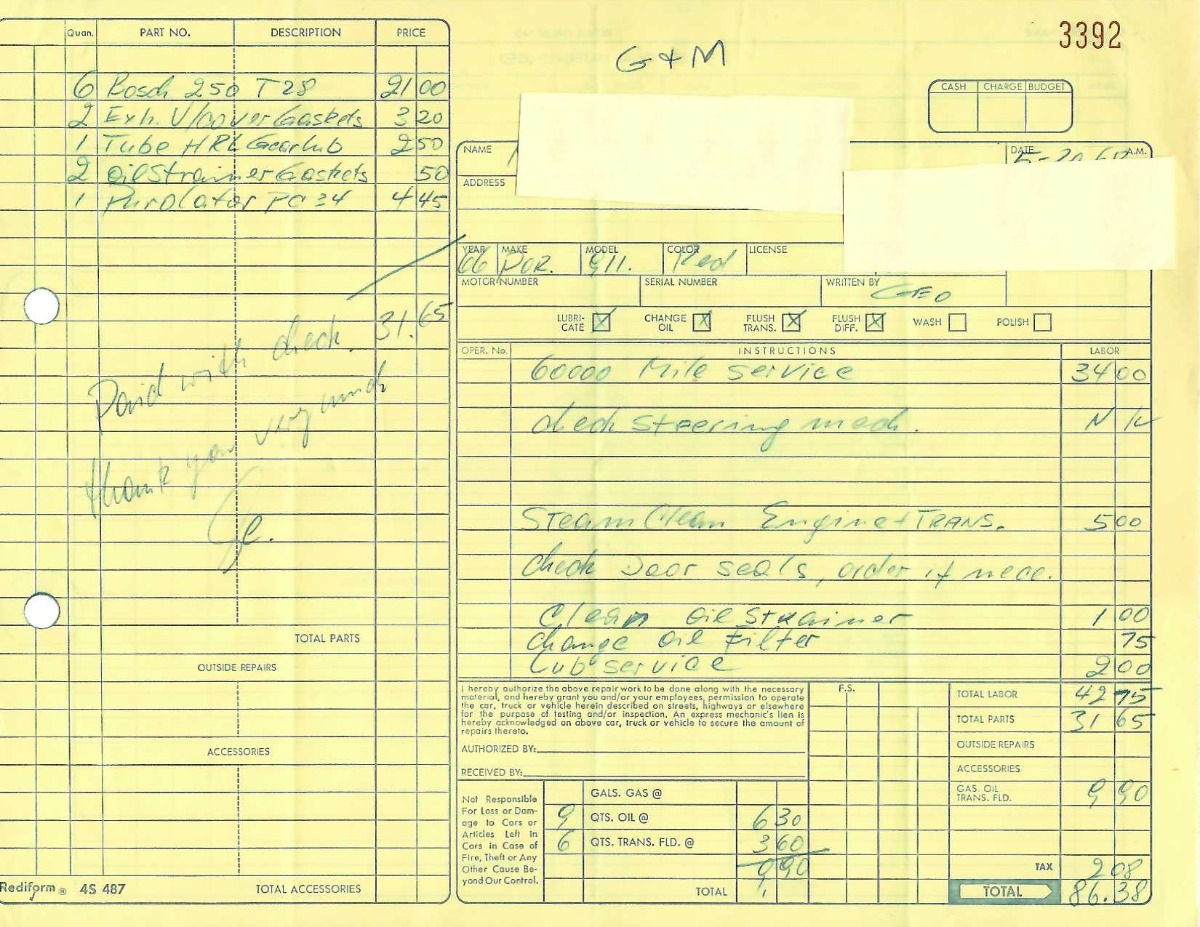 3392
G + M
CASH CHARGE BUDGET
Quan. PART NO. DESCRIPTION PRICE
6 Bosch 250 T28 21 00
2 Exh. V/Cover Gaskets 3 20
1 Tube HRL 2 50
2 Oil Strainer Gaskets 50
1 Purolator PC 34 4 45
31.65
Paid with check.
thank you very much
Ge.
TOTAL PARTS
OUTSIDE REPAIRS
ACCESSORIES
Rediform ® 4S 487 TOTAL ACCESSORIES
NAME DATE A.M.
ADDRESS
YEAR 66 MAKE POR. MODEL 911. COLOR Red LICENSE
MOTOR NUMBER SERIAL NUMBER WRITTEN BY GEO
LUBRI-CATE X CHANGE OIL X FLUSH TRANS. X FLUSH DIFF. X WASH POLISH
OPER. No. INSTRUCTIONS LABOR
60000 Mile service 34 00
check steering mech. N/C
Steam Clean Engine + TRANS. 5 00
check Door seals, order if nece.
Clean oil strainer 1 00
change oil filter 75
Lub service 2 00
I hereby authorize the above repair work to be done along with the necessary
material, and hereby grant you and/or your employees, permission to operate
the car, truck or vehicle herein described on streets, highways or elsewhere
for the purpose of testing and/or inspection. An express mechanic's lien is
hereby acknowledged on above car, truck or vehicle to secure the amount of
repairs thereto.
AUTHORIZED BY:
RECEIVED BY:
F.S.
TOTAL LABOR 42 75
TOTAL PARTS 31 65
OUTSIDE REPAIRS
ACCESSORIES
GAS. OIL TRANS. FLD. 9 90
TAX 2 08
TOTAL 86.38
Not Responsible
For Loss or Dam-
age to Cars or
Articles Left in
Cars in Case of
Fire, Theft or Any
Other Cause Be-
yond Our Control.
GALS. GAS @
9 QTS. OIL @ 6 30
6 QTS. TRANS. FLD. @ 3 60
9 90
TOTAL